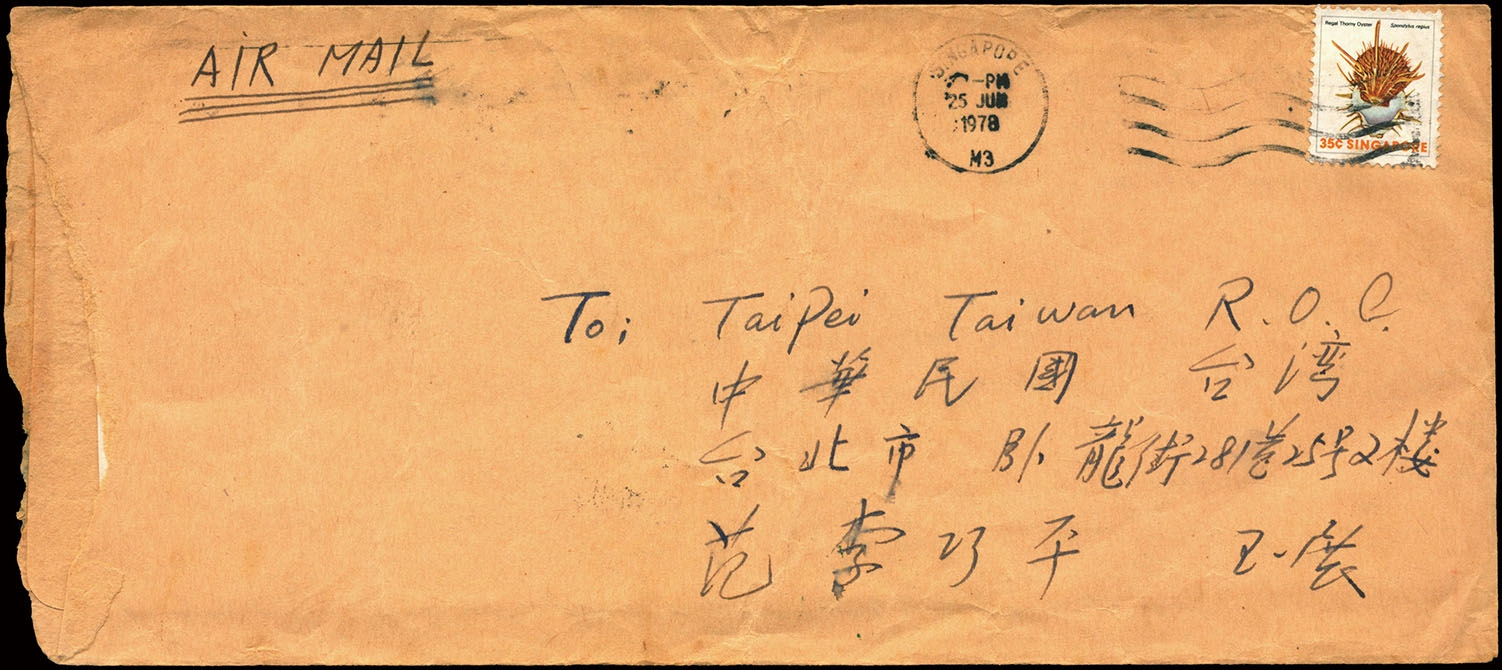 AIR MAIL
SINGAPORE
-PM
25 JUN
1978
M3
Regal Thorny Oyster Spondylus regius
35¢ SINGAPORE
To: TaiPei Taiwan R.O.C.
中華民國 台湾
台北市 卧龍街281巷25号2楼
范李巧平